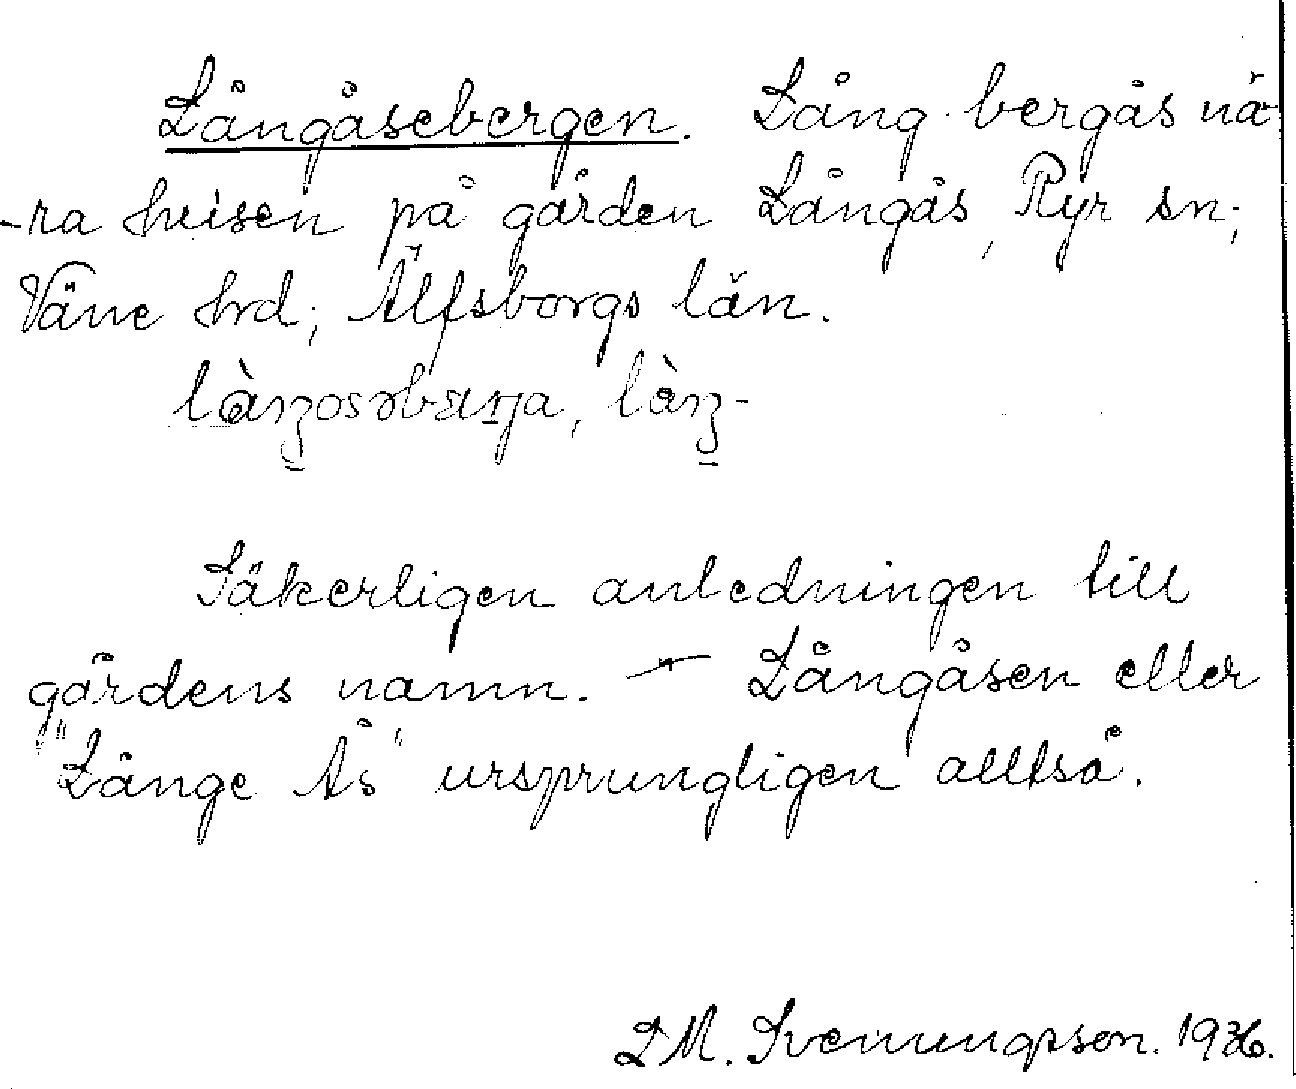 Långåsebergen. Lång bergås nä
-ra husen på gården Långås, Ryr sn;
Väne hrd; Älfsborgs län.
Säkerligen anledningen till
gårdens namn. — Långåsen eller
"Långe Ås" ursprungligen alltså.
L M. Svenungsson. 1936.